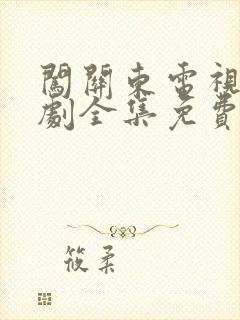 闖關東電視
劇全集免費
筱柔